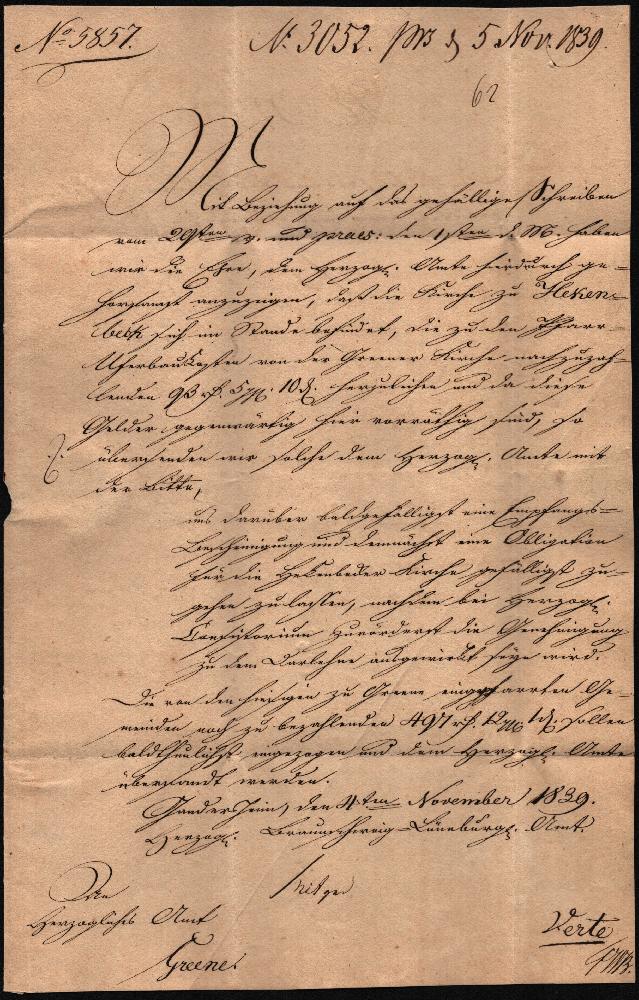 No 5857.
N. 3052. prs d 5 Nov. 1839.
62
Mit Beziehung auf das gefällige Schreiben
vom 29sten v. und praes: den 1sten d. M. haben
wir die Ehre, dem Herzogl. Amte hierdurch ge-
horsamst anzuzeigen, daß die Kirche zu Heken-
beck sich im Stande befindet, die zu den Pfarr-
Uferbaukosten von der Greener Kirche nachzuzah-
lenden 93 rl. 5 10 herzuleihen und da diese
Gelder gegenwärtig hier vorräthig sind, so
übersenden wir solche dem Herzogl. Amte mit
der Bitte,
uns darüber baldgefälligst eine Empfangs-
Bescheinigung und demnächst eine Obligation
für die Hekenbecker Kirche gefälligst zu-
gehen zu lassen, nachdem bei Herzogl.
Consistorium zuvörderst die Genehmigung
zu dem Darlehne ausgewirkt seyn wird.
Die von den hiesigen zu Greene eingepfarrten Ge-
meinden noch zu bezahlenden 497 12 1 sollen
baldthunlichst eingezogen und dem Herzogl. Amte
übersandt werden.
Gandersheim, den 4ten November 1839.
Herzogl. Braunschweig-Lüneburg. Amt.
An
Herzogliches Amt
Greene.
Verte